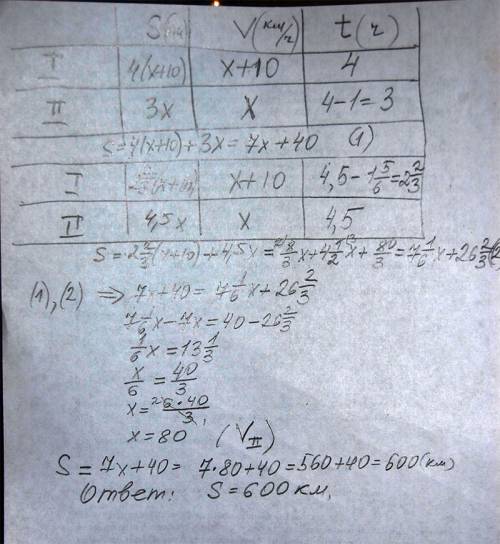 S(км) V(км/ч) t(ч)
I 4(x+10) x+10 4
II 3x x 4-1=3
S=4(x+10)+3x=7x+40 (1)
I 2 2/3(x+10) x+10 4,5-1 5/6=2 2/3
II 4,5x x 4,5
S=2 2/3(x+10)+4,5x=8/3x+4 1/2x+80/3=7 1/6x+26 2/3 (2)
(1),(2) ⇒ 7x+40=7 1/6x+26 2/3
7 1/6x-7x=40-26 2/3
1/6x=13 1/3
x/6=40/3
x=6·40/3
x=80 (V II)
S=7x+40=7·80+40=560+40=600(км)
Ответ: S=600 км.